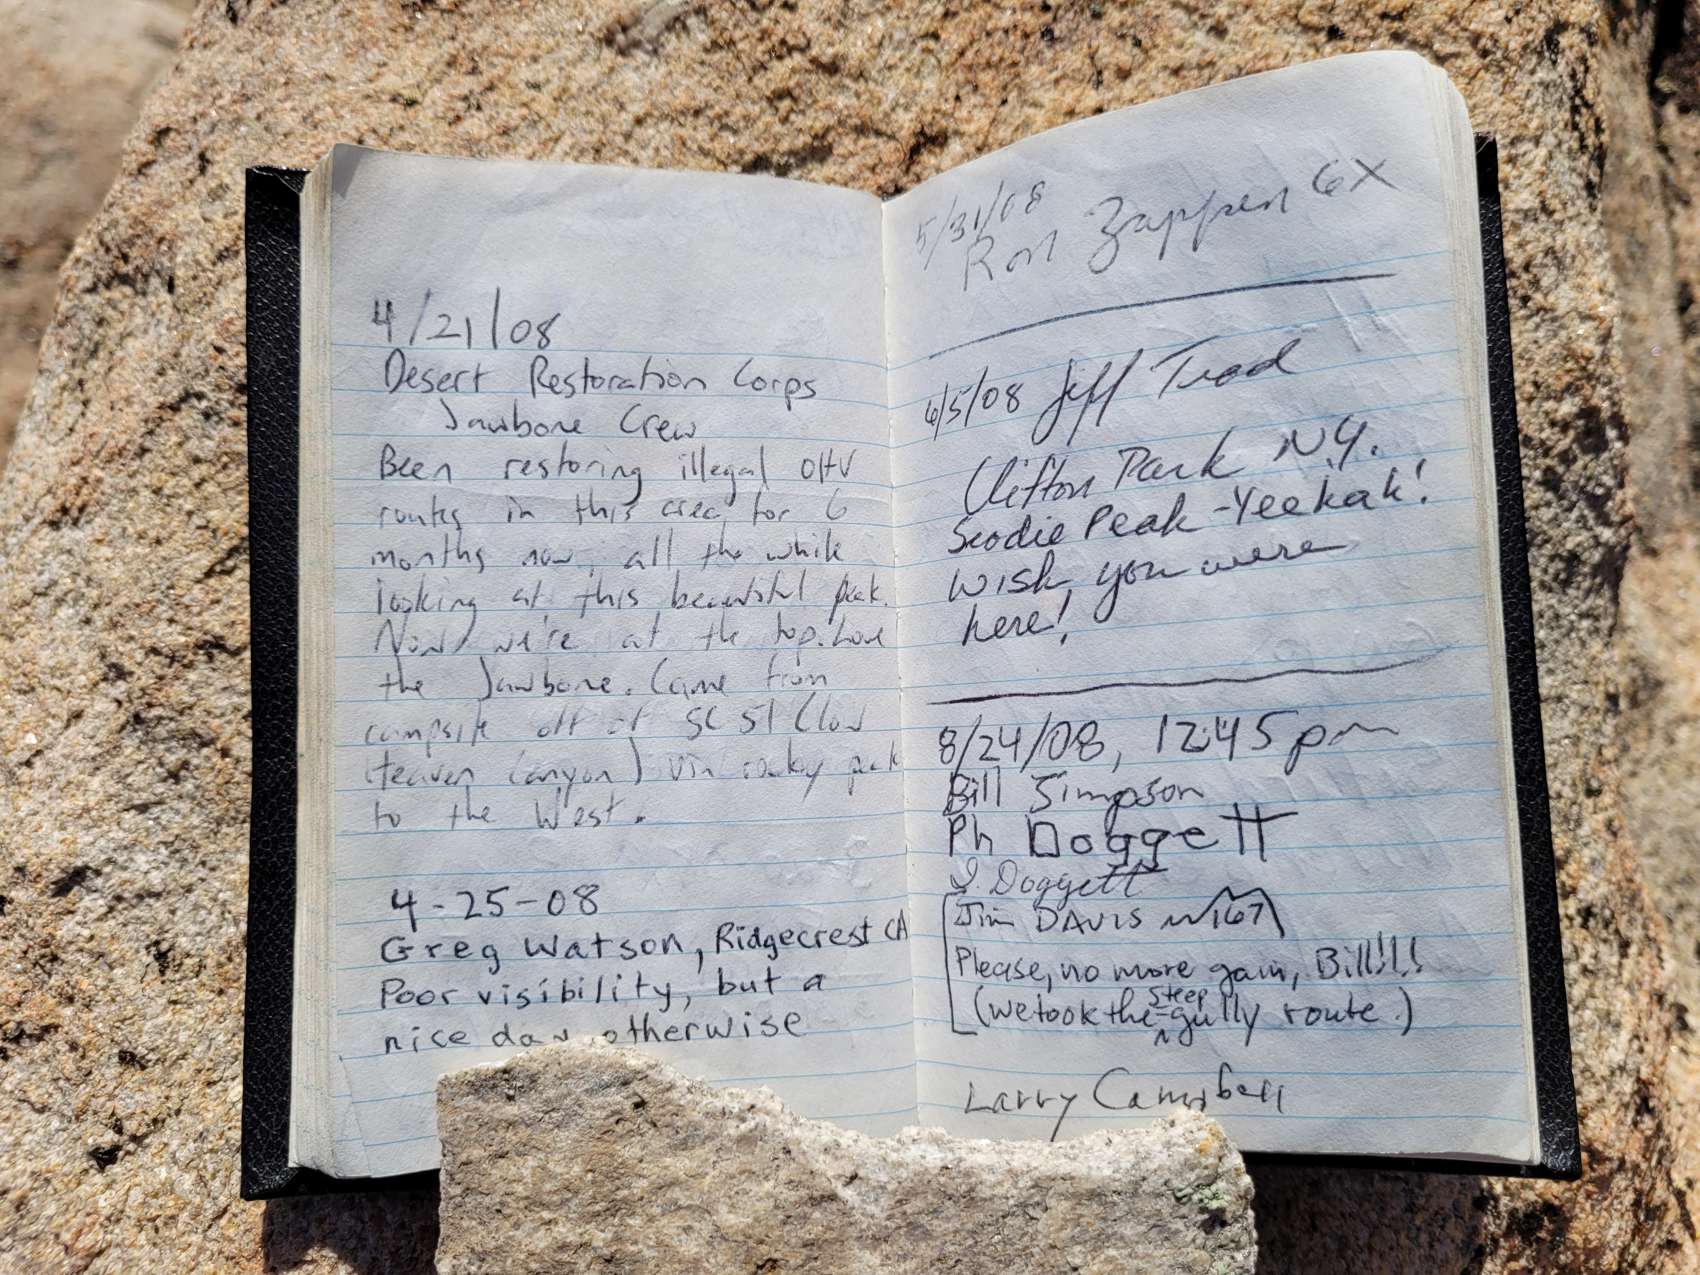 4/21/08
Desert Restoration Corps
Jawbone Crew
Been restoring illegal OHV
routes in this area for 6
months now, all the while
looking at this beautiful peak.
Now we're at the top. Love
the Jawbone. Came from
campsite off of SC 51 (Cow
Heaven Canyon) via rocky peak
to the West.
4-25-08
Greg Watson, Ridgecrest CA
Poor visibility, but a
nice day otherwise
5/31/08
Ron 6X
6/5/08 Jeff
Clifton Park N.Y.
Scodie Peak - Yeekak!
Wish you were
here!
8/24/08, 12:45 pm
Bill Simpson
Ph Doggett
J. Doggett
Jim DAVIS 167
Please, no more gain, Bill!!!
(we took the steep gully route.)
Larry Campbell